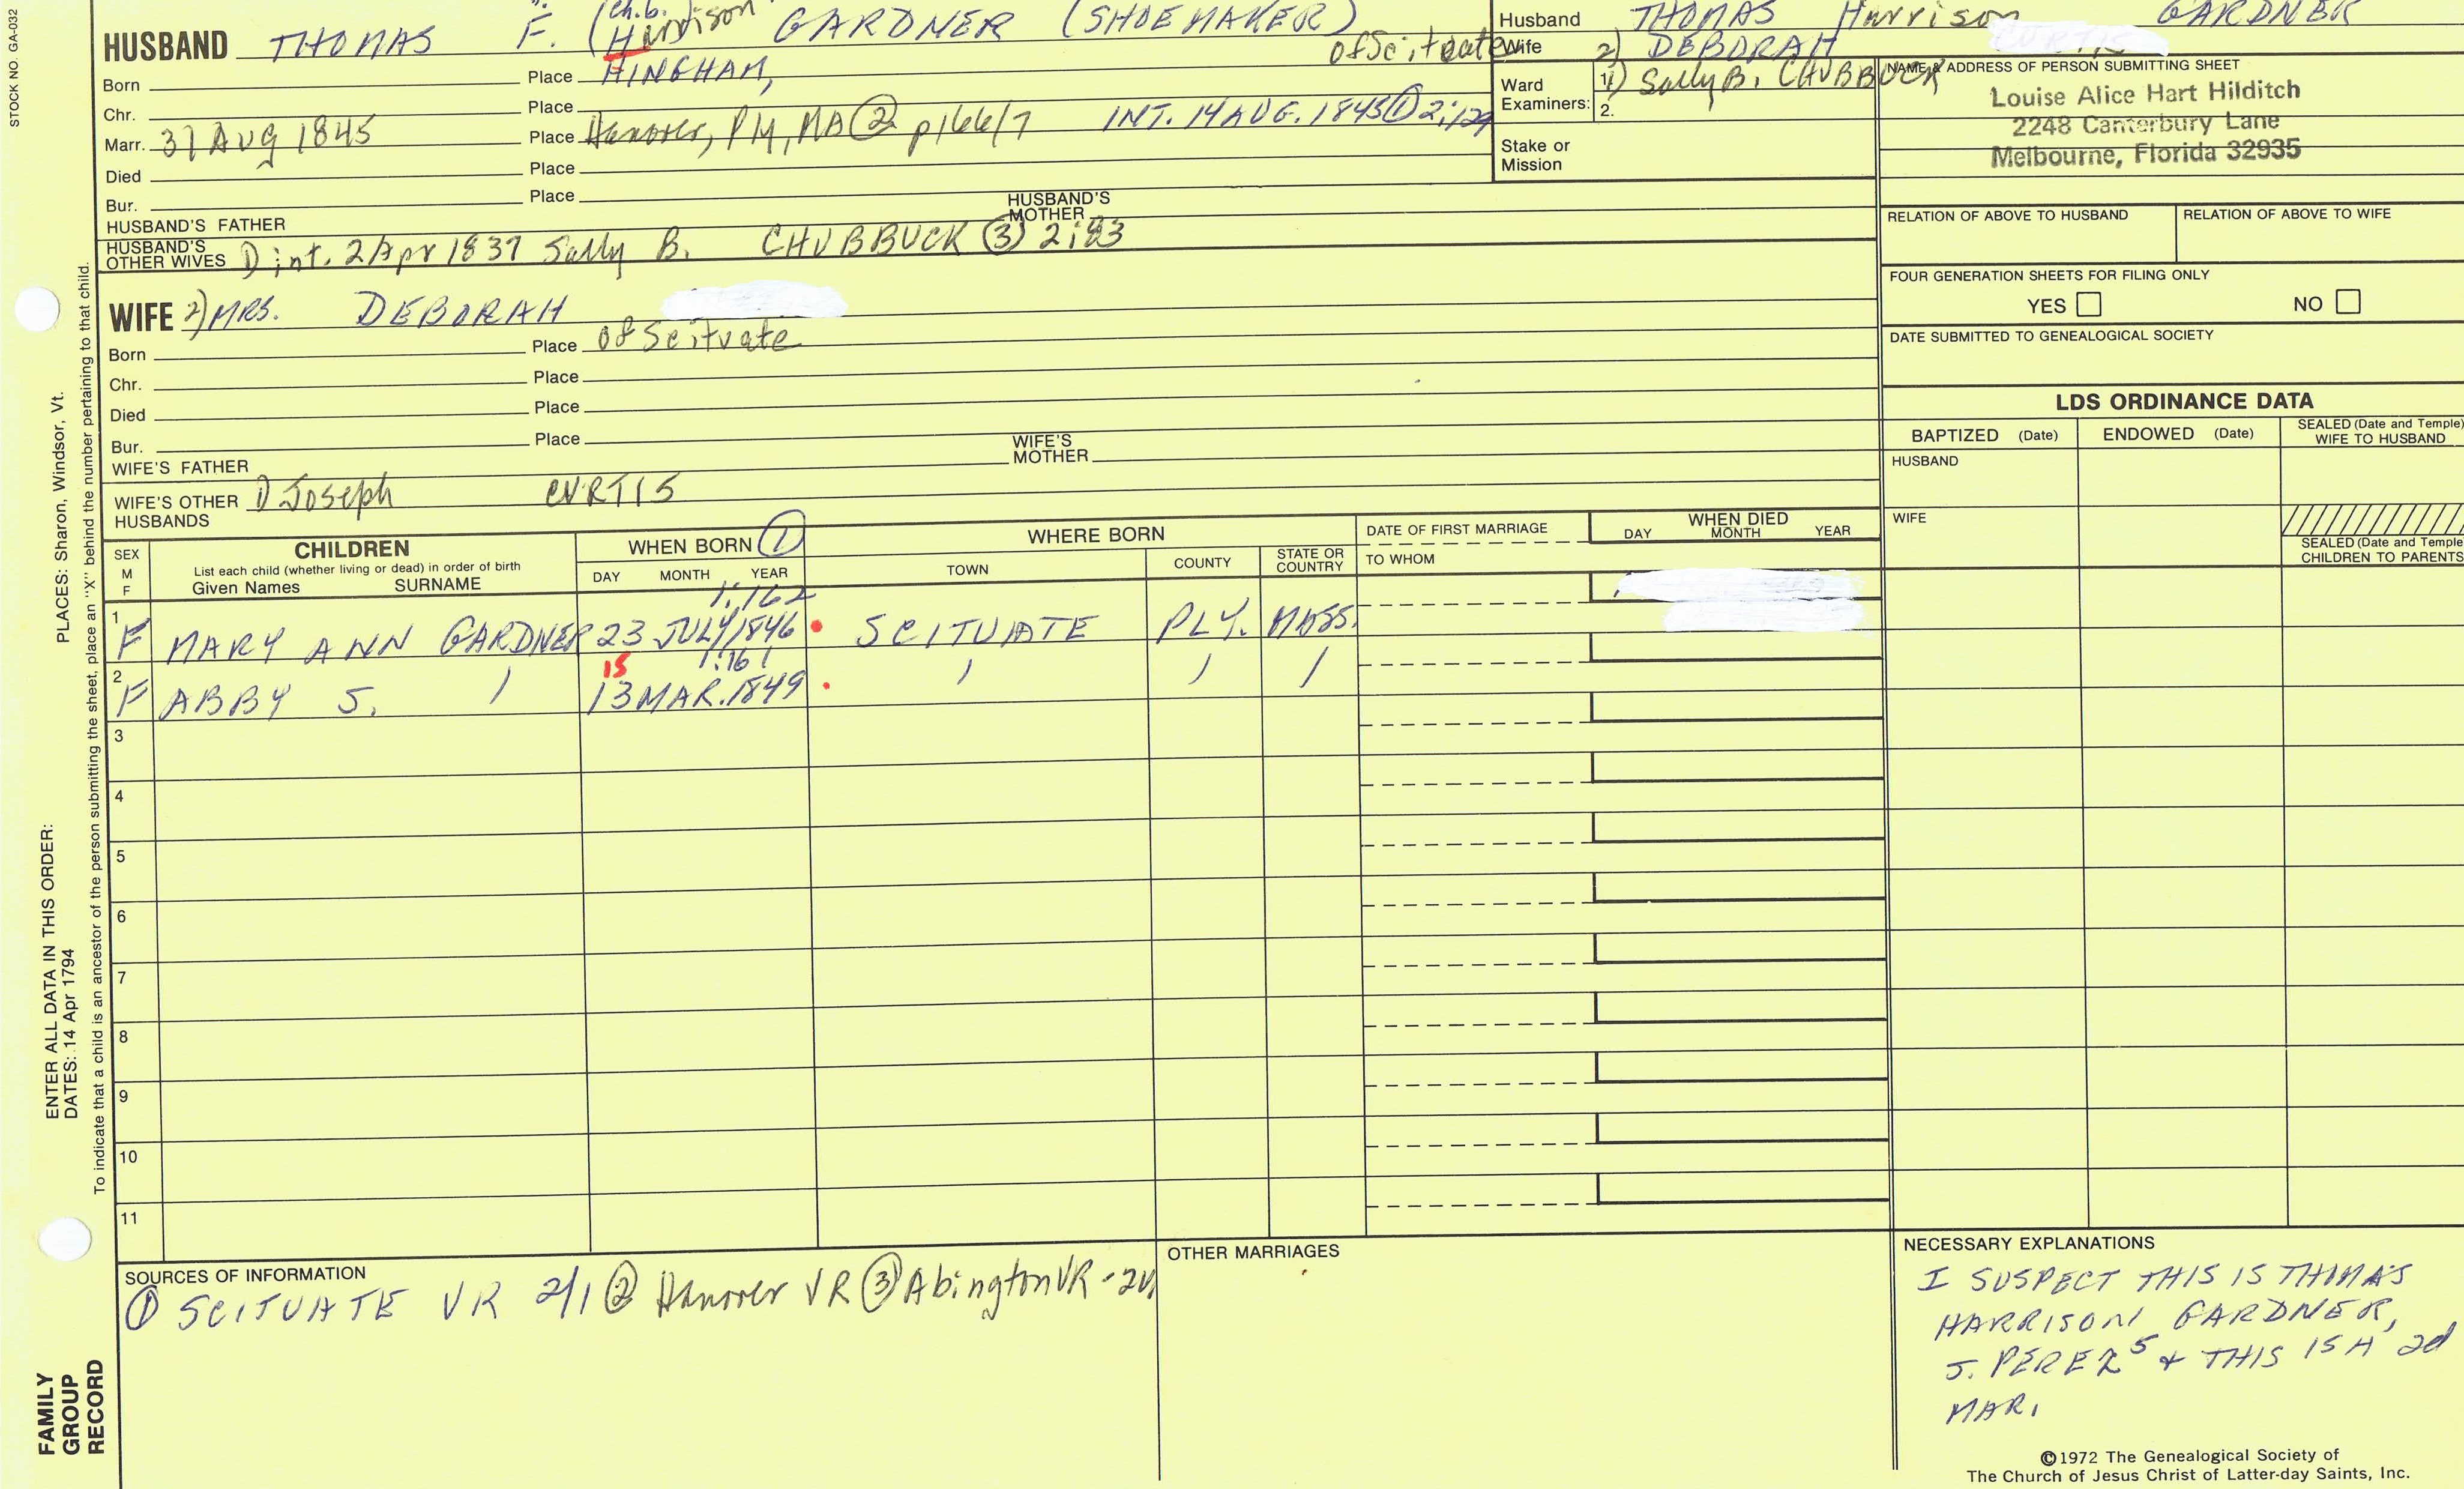 STOCK NO. GA-032
HUSBAND THOMAS F. (Ch.b. Harrison GARDNER (SHOEMAKER) of Scituate
Born Place HINGHAM,
Chr. Place
Marr. 31 AUG 1845 Place Hanover, PLY, MA ② p166/7 INT. 14 AUG. 1845 ① 2:129
Died Place
Bur. Place
HUSBAND'S FATHER HUSBAND'S MOTHER
HUSBAND'S OTHER WIVES 1) int. 2 Apr 1837 Sally B. CHUBBUCK ③ 2:83
WIFE 2) MRS. DEBORAH
Born Place of Scituate
Chr. Place
Died Place
Bur. Place
WIFE'S FATHER WIFE'S MOTHER
WIFE'S OTHER HUSBANDS 1) Joseph CURTIS
Husband THOMAS Harrison GARDNER
Wife 2) DEBORAH CURTIS
Ward Examiners: 1. 1) Sally B. CHUBBUCK
2.
Stake or Mission
NAME & ADDRESS OF PERSON SUBMITTING SHEET
Louise Alice Hart Hilditch
2248 Canterbury Lane
Melbourne, Florida 32935
RELATION OF ABOVE TO HUSBAND RELATION OF ABOVE TO WIFE
FOUR GENERATION SHEETS FOR FILING ONLY
YES NO
DATE SUBMITTED TO GENEALOGICAL SOCIETY
LDS ORDINANCE DATA
BAPTIZED (Date) ENDOWED (Date) SEALED (Date and Temple) WIFE TO HUSBAND
HUSBAND
WIFE
SEALED (Date and Temple CHILDREN TO PARENTS
SEX M F
CHILDREN
List each child (whether living or dead) in order of birth
Given Names SURNAME
WHEN BORN ①
DAY MONTH YEAR
WHERE BORN
TOWN COUNTY STATE OR COUNTRY
DATE OF FIRST MARRIAGE
TO WHOM
WHEN DIED
DAY MONTH YEAR
1:162
1 F MARY ANN GARDNER 23 JULY 1846 SCITUATE PLY. MASS.
15 1:161
2 F ABBY S. / 13 MAR. 1849 / / /
3
4
5
6
7
8
9
10
11
SOURCES OF INFORMATION
① SCITUATE VR 2/1 ② Hanover VR ③ Abington VR - 2v
OTHER MARRIAGES
NECESSARY EXPLANATIONS
I SUSPECT THIS IS THOMAS
HARRISON GARDNER,
S. PEREZ⁵ + THIS IS A 2d
MAR.
©1972 The Genealogical Society of
The Church of Jesus Christ of Latter-day Saints, Inc.
PLACES: Sharon, Windsor, Vt.
To indicate that a child is an ancestor of the person submitting the sheet, place an "X" behind the number pertaining to that child.
ENTER ALL DATA IN THIS ORDER:
DATES: 14 Apr 1794
FAMILY
GROUP
RECORD